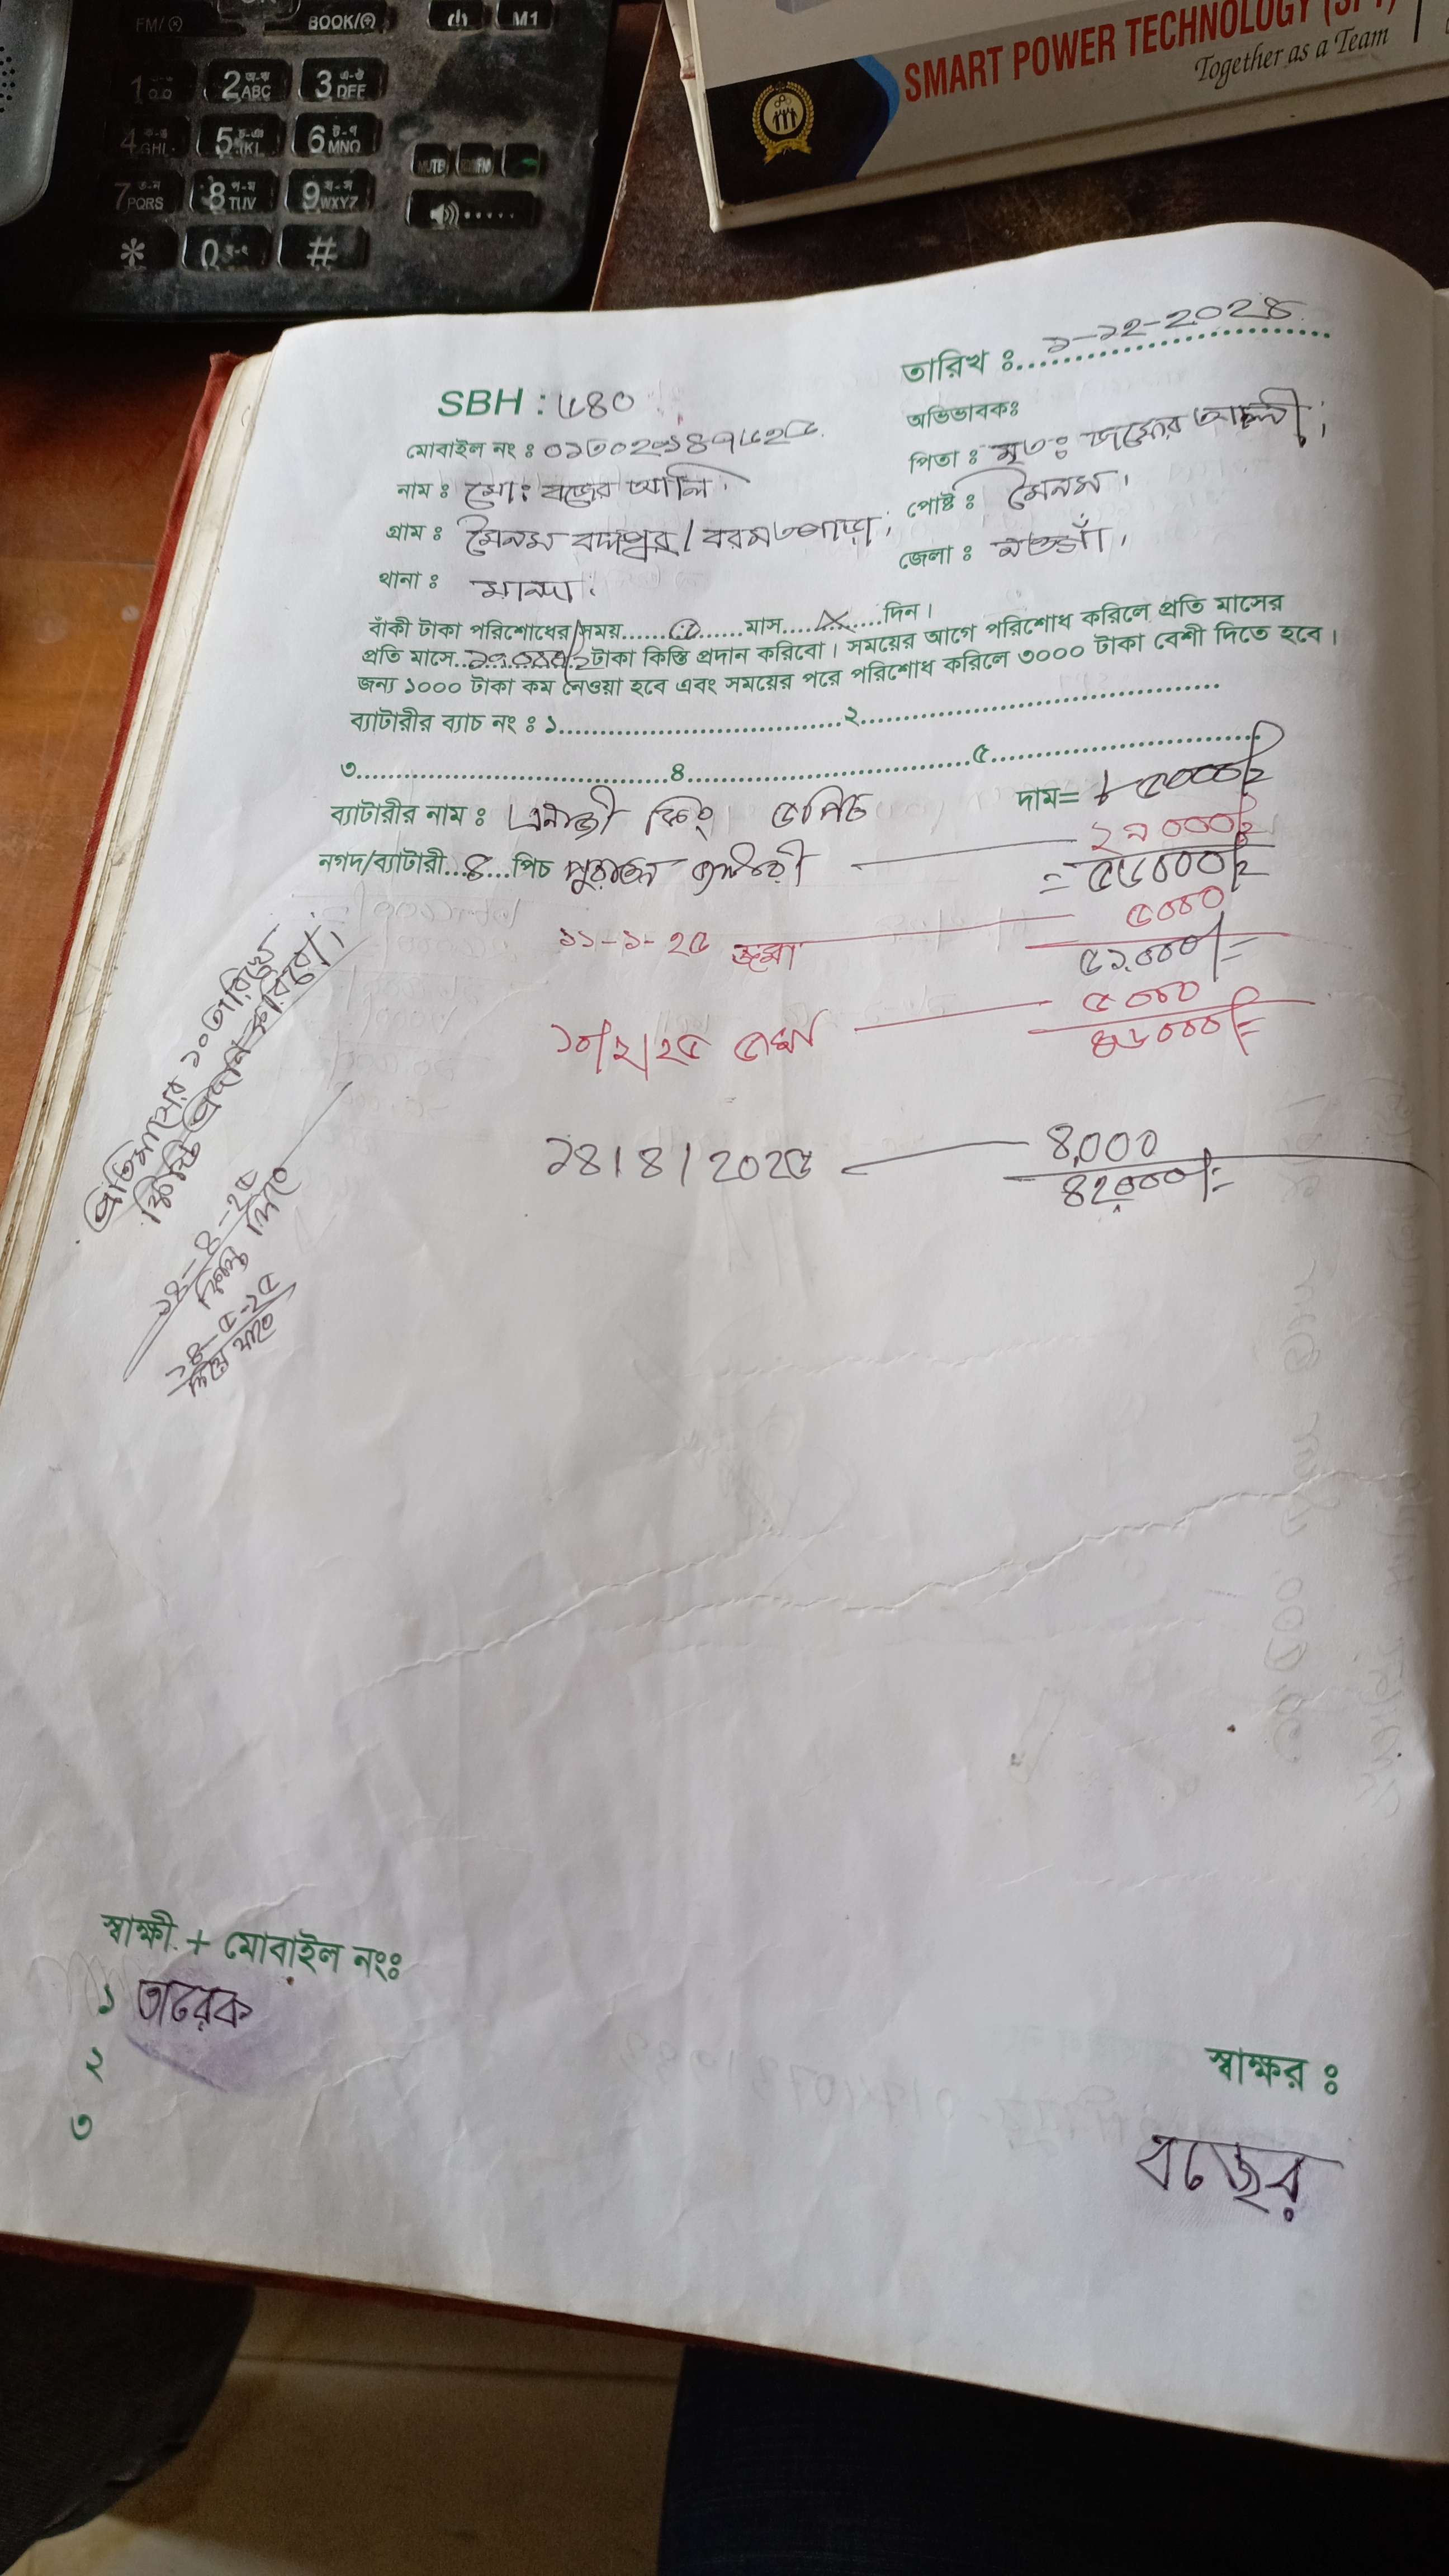 FM/ BOOK/ M1
1 2 ABC 3 DEF
4 GHI 5 JKL 6 MNO
7 PQRS 8 TUV 9 WXYZ
MUTE
* 0 #
SMART POWER TECHNOLOGY (SPT)
Together as a Team
তারিখ ঃ ১-১২-২০২৪
SBH : ৬৪০
অভিভাবকঃ
মোবাইল নং ঃ
পিতা ঃ মৃতঃ আলী
নাম ঃ মোঃ বজের আলি
পোষ্ট ঃ মৈনম
গ্রাম ঃ মৈনম
জেলা ঃ নওগাঁ
থানা ঃ মান্দা
বাঁকী টাকা পরিশোধের সময়.......মাস.....X.....দিন।
প্রতি মাসে..........টাকা কিস্তি প্রদান করিবো। সময়ের আগে পরিশোধ করিলে প্রতি মাসের
জন্য ১০০০ টাকা কম নেওয়া হবে এবং সময়ের পরে পরিশোধ করিলে ৩০০০ টাকা বেশী দিতে হবে।
ব্যাটারীর ব্যাচ নং ঃ ১..........২..........
৩..........৪..........৫..........
ব্যাটারীর নাম ঃ ৫পিচ দাম= ৮৫০০০/=
নগদ/ব্যাটারী...৪...পিচ পুরাতন ব্যাটারী ২৯০০০/=
= ৫৬০০০/=
১১-১-২৫ জমা ৫০০০
৫১,০০০/=
১০/২/২৫ জমা ৫০০০
৪৬০০০/=
১৪/৪/২০২৫ ৪,০০০
৪২০০০/=
প্রতিমাসের ১০তারিখে
কিস্তি প্রদান করিবো।
১৪-৪-২৫
১৪-৫-২৫
স্বাক্ষী + মোবাইল নংঃ
১ তারেক
২
৩
স্বাক্ষর ঃ
বজের